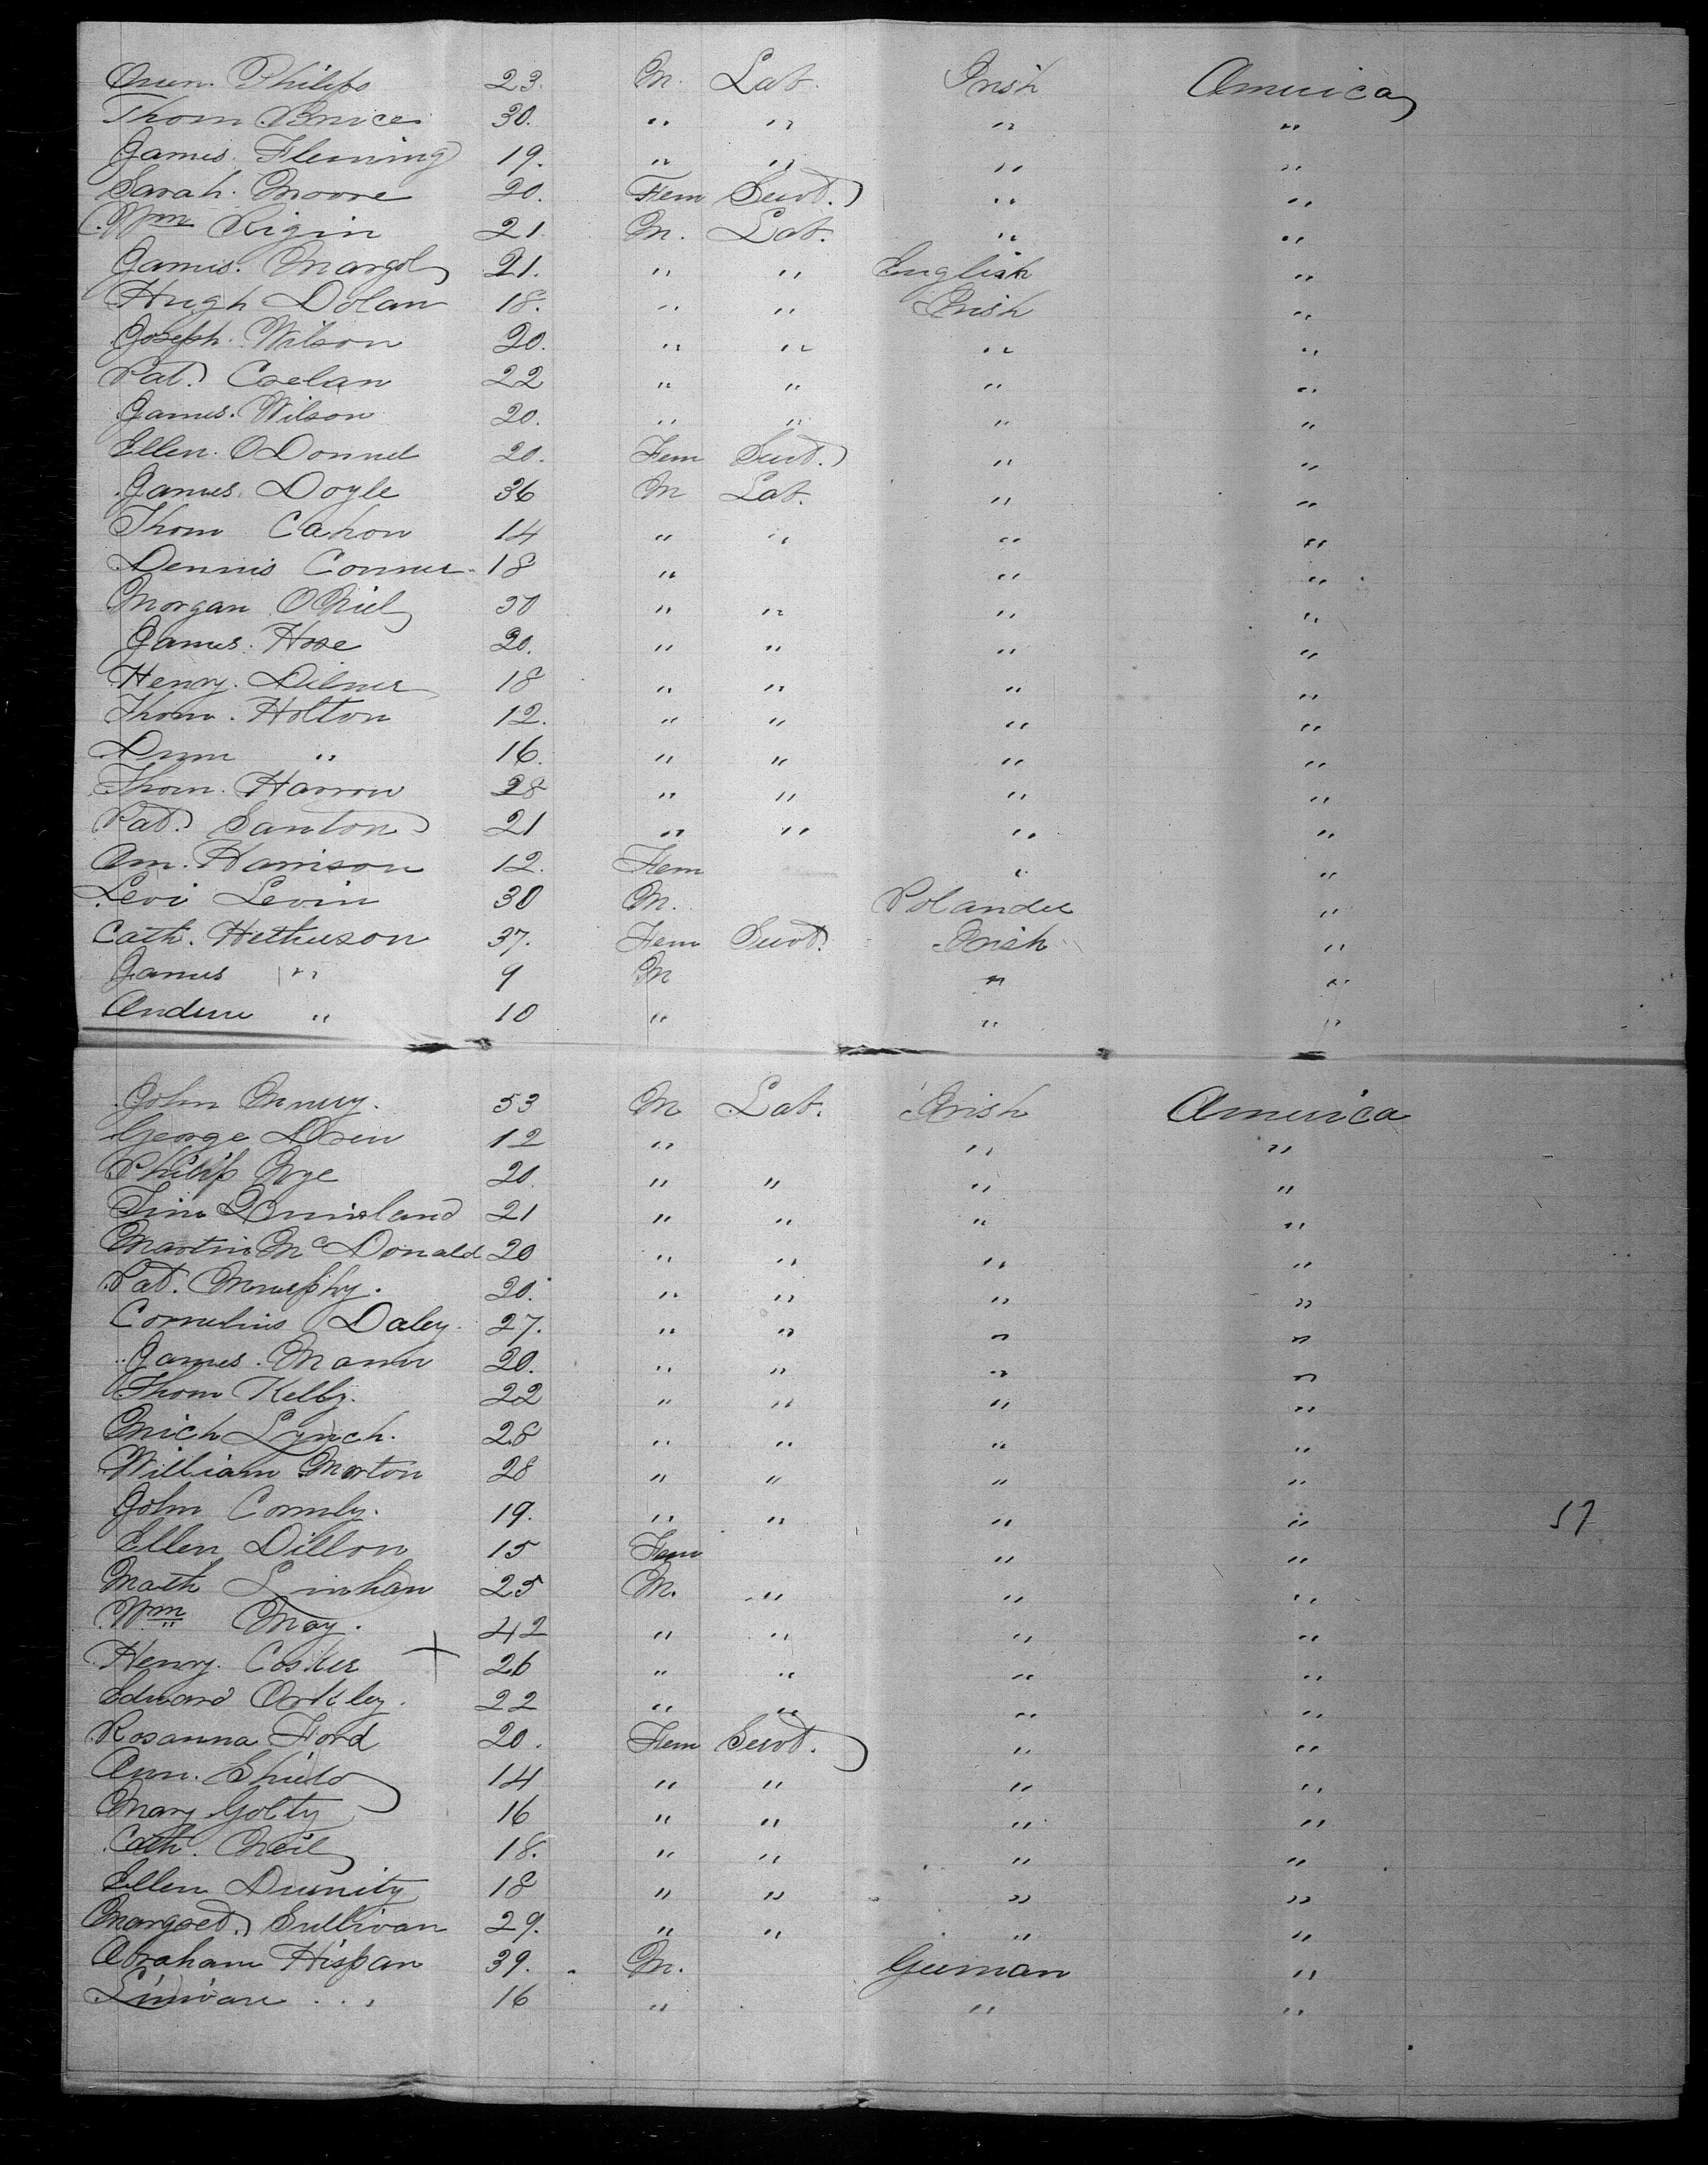 Owen. Philips 23. M. Lab. Irish America
Thom Brice 30. " " " "
James. Fleming 19. " " " "
Sarah. Moore 20. Fem Servt. " "
Wm Rigin 21 M. Lab. " "
James. Margol 21. " " English "
Hugh Dolan 18. " " Irish "
Joseph. Wilson 20. " " " "
Pat. Coelan 22 " " " "
James. Wilson 20. " " " "
Ellen. ODonnel 20. Fem Servt. " "
James. Doyle 36 M Lab. " "
Thom Cahon 14 " " " "
Dennis Conner 18 " " "
Morgan ONiel 30 " " " "
James. Hose 20. " " " "
Henry. Dilner 18 " " " "
Thom. Holton 12. " " " "
" 16. " " " "
Thom. Harron 28 " " " "
Pat. Santon 21 " " " "
Am. Harrison 12. Fem " "
Levi Levin 30 M. Polander "
Cath. Hetherson 37. Fem Servt. Irish "
James " 9 M " "
Andrew " 10 " " "
John 53 M Lab. Irish America
George Drew 12 " " "
Philip Nye 20. " " " "
Tim Quinsland 21 " " " "
Martin McDonald 20 " " " "
Pat. Murphy. 20. " " " "
Cornelius Daley. 27. " " " "
James. Mann 20. " " " "
Thom Kelly. 22 " " " "
Mich Lynch. 28 " " " "
William Morton 28 " " " "
John Cormly. 19. " " " " 57
Ellen Dillon 15 Fem " "
Math Linhan 25 M. " " "
Wm May. 42 " " " "
Henry. Cosker + 26 " " " "
Edward Orkley. 22 " " " "
Rosanna Ford 20. Fem Servt. " "
Ann. Shields 14 " " " "
Mary Golty 16 " " " "
Cath. Neil 18. " " " "
Ellen Dunity 18 " " " "
Margret. Sullivan 29. " " " "
Abraham Hispan 39. M. German "
" 16 " " "